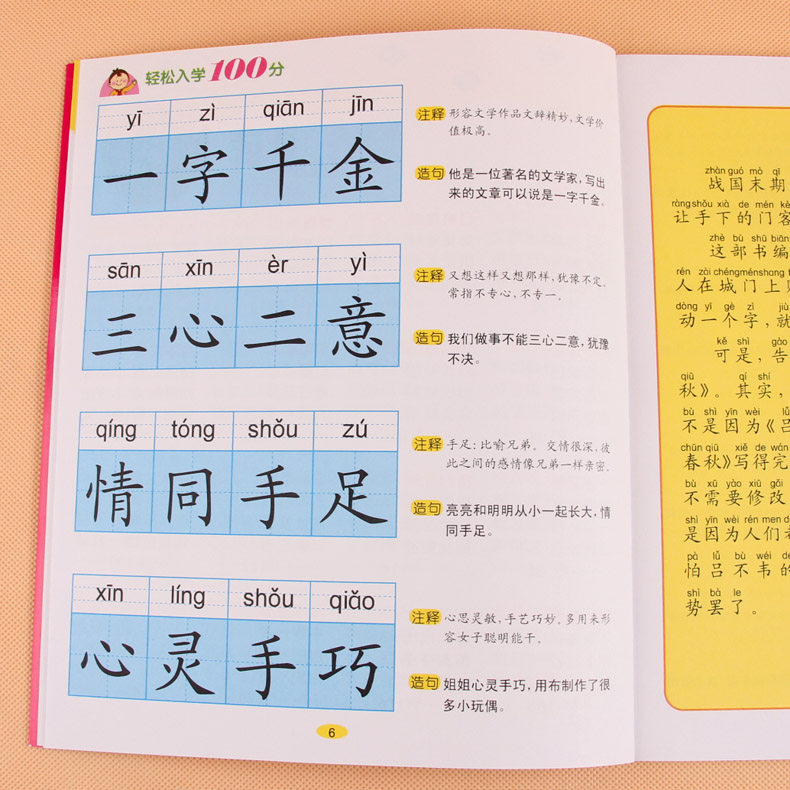 轻松入学100分
yī zì qiān jīn
一字千金
注释 形容文学作品文辞精妙,文学价
值极高。
造句 他是一位著名的文学家,写出
来的文章可以说是一字千金。
sān xīn èr yì
三心二意
注释 又想这样又想那样,犹豫不定。
常指不专心,不专一。
造句 我们做事不能三心二意,犹豫
不决。
qíng tóng shǒu zú
情同手足
注释 手足:比喻兄弟。交情很深,彼
此之间的感情像兄弟一样亲密。
造句 亮亮和明明从小一起长大,情
同手足。
xīn líng shǒu qiǎo
心灵手巧
注释 心思灵敏,手艺巧妙。多用来形
容女子聪明能干。
造句 姐姐心灵手巧,用布制作了很
多小玩偶。
6
zhàn guó mò qī
战国末期
ràng shǒu xià de mén kè
让手下的门客
zhè bù shū biān
这部书编
rén zài chéngménshang
人在城门上
dòng yī gè zì
动一个字,就
kě shì gào
可是,告
qiū qí shí
秋》。其实,
bù shì yīn wèi lǚ
不是因为《吕
chūn qiū xiě de
春秋》写得完
bù xū yào xiū gǎi
不需要修改
shì yīn wèi rén men
是因为人们
pà lǚ bù wéi de
怕吕不韦的
shì bà le
势罢了。